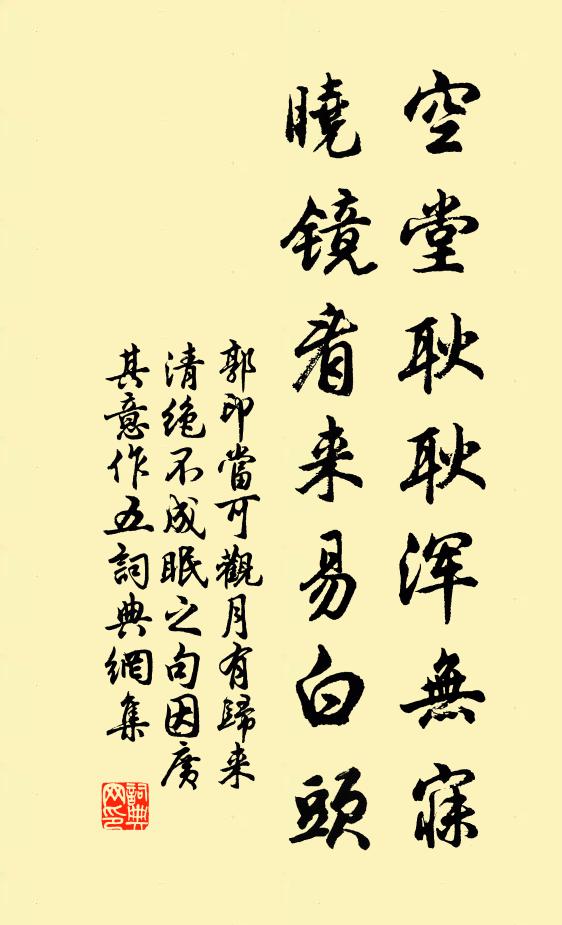 空堂耿耿浑無寐
曉镜看来易白頭
郭印當可觀月有歸来
清绝不成眠之句因廣
其意作五詞典網集
詞典网印